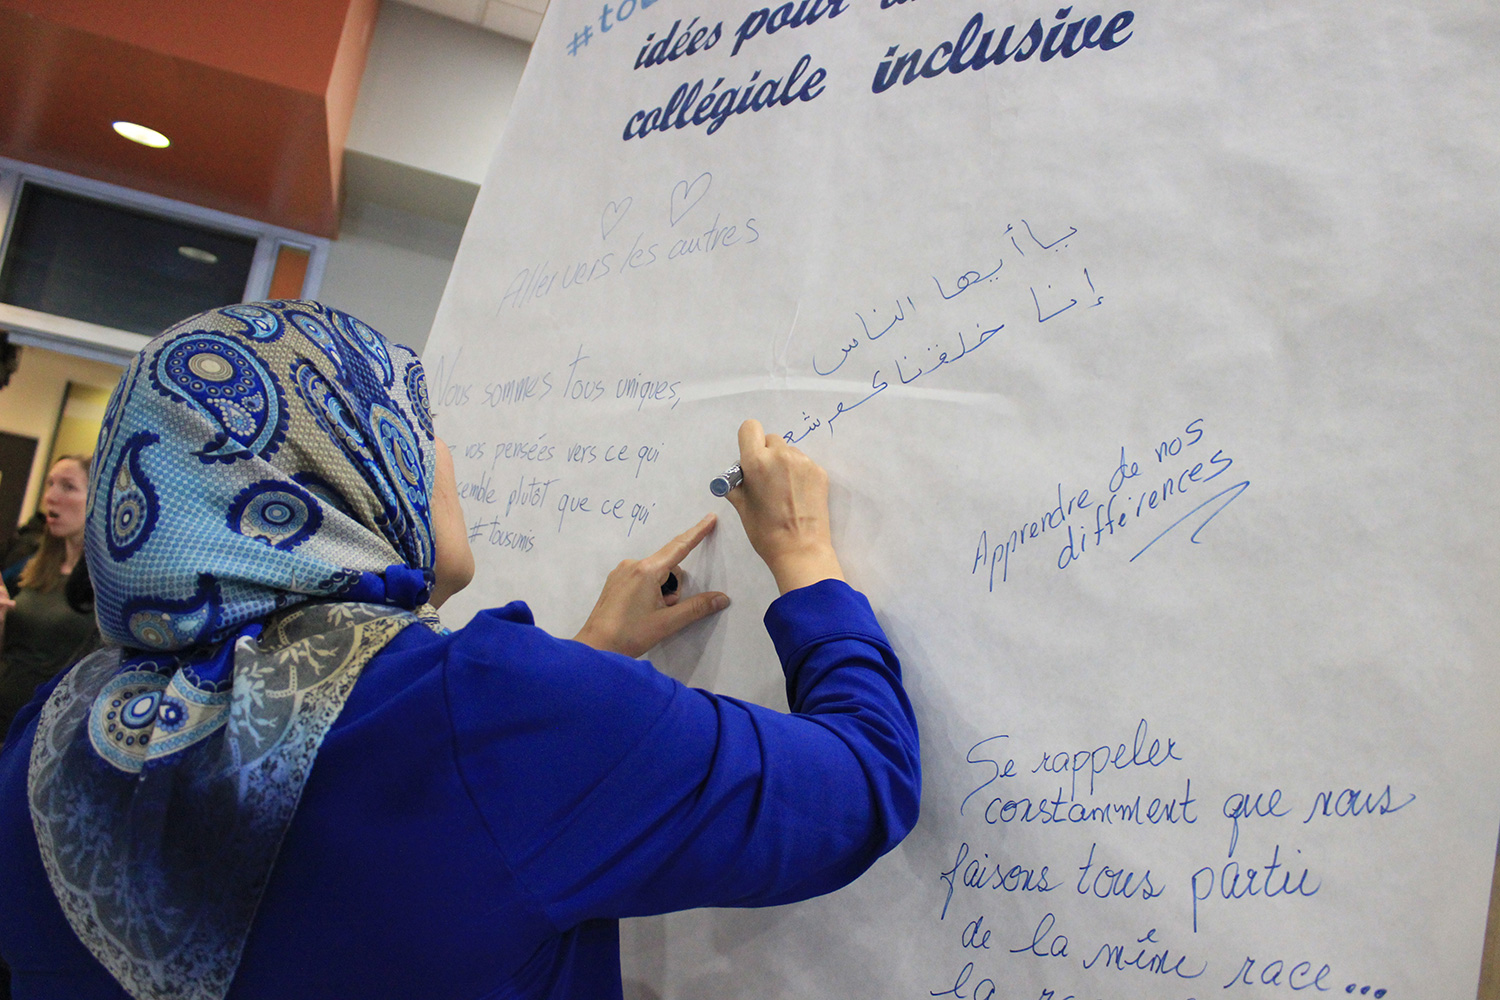 idées pour
collégiale inclusive
Aller vers les autres
Nous sommes tous uniques,
vos pensées vers ce qui
semble plutôt que ce qui
#tousunis
يا أيها الناس
إنا خلقناكم شع
Apprendre de nos
différences
Se rappeler
constamment que nous
faisons tous partie
de la même race...
la